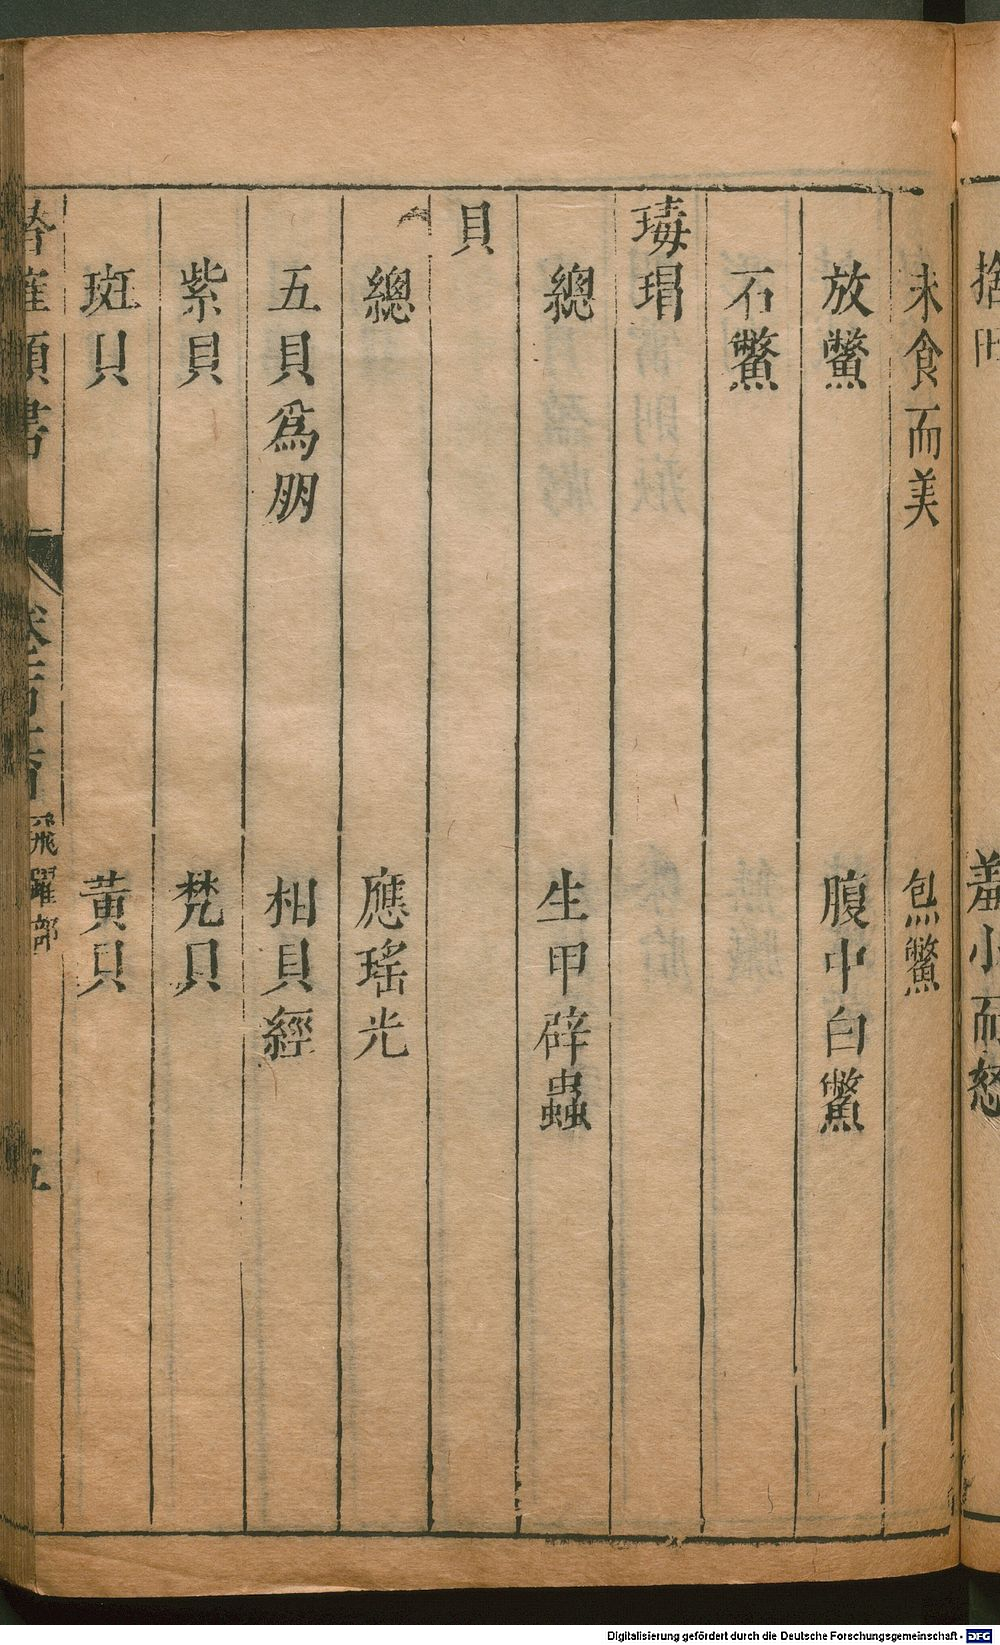 未食而美 炰鱉
放鱉 腹中白鱉
石鱉
瑇瑁
總 生甲辟蟲
貝
總 應瑤光
五貝爲朋 相貝經
紫貝 梵貝
斑貝 黃貝
類書 飛躍部 五
羞小而怒
Digitalisierung gefördert durch die Deutsche Forschungsgemeinschaft - DFG